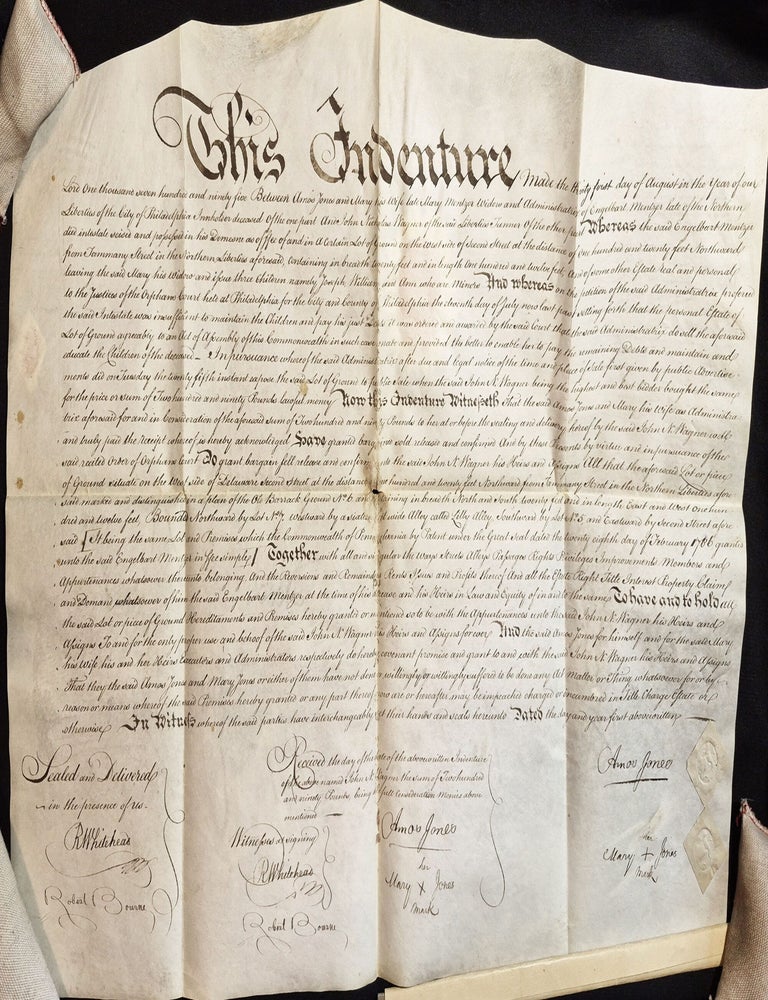 This Indenture Made the thirty first day of August in the Year of our
Lord One thousand seven hundred and ninety five Between Amos Jones and Mary his Wife late Mary Mentzer Widow and Administratrix of Engelbart Mentzer late of the Northern
Liberties of the City of Philadelphia Innholder deceased Of the one part And John Nicholas Wagner of the said Liberties Tanner Of the other part Whereas the said Engelbart Mentzer
died intestate seized and possessed in his Demesne as of fee of and in a Certain Lot of Ground on the West side of Second Street at the distance of one hundred and twenty feet Northward
from Tammany Street in the Northern Liberties aforesaid, containing in breadth twenty feet and in length One hundred and twelve feet And of some other Estate real and personal
leaving the said Mary his Widow and issue three Children namely Joseph William and Ann who are Minors And whereas on the petition of the said Administratrix preferred
to the Justices of the Orphans Court held at Philadelphia for the City and County of Philadelphia the eleventh day of July now last past setting forth that the personal Estate of
the said Intestate was insufficient to maintain the Children and pay his just Debts it was ordered and awarded by the said Court that the said Administratrix do sell the aforesaid
Lot of Ground agreeably to an Act of Assembly of this Commonwealth in such case made and provided the better to enable her to pay the remaining Debts and maintain and
educate the Children of the deceased In pursuance whereof the said Administratrix after due and legal notice of the time and place of Sale first given by public Advertise
ments did on Tuesday the twenty fifth instant expose the said Lot of Ground to public Sale when the said John N. Wagner being the highest and best bidder bought the same
for the price or sum of Two hundred and ninety Pounds lawful money Now this Indenture Witnesseth That the said Amos Jones and Mary his Wife as Administra
trix aforesaid for and in Consideration of the aforesaid sum of Two hundred and ninety Pounds to her at or before the sealing and delivery hereof by the said John N. Wagner well
and truly paid the receipt whereof is hereby acknowledged Have granted bargained sold released and confirmed And by these Presents by virtue and in pursuance of the
said recited Order of Orphans Court Do grant bargain sell release and confirm unto the said John N. Wagner his Heirs and Assigns All that the aforesaid Lot or piece
of Ground situate on the West side of Delaware Second Street at the distance of One hundred and twenty feet Northward from Tammany Street in the Northern Liberties afore
said marked and distinguished in a plan of the Old Barrack Ground No 6 and containing in breadth North and South twenty feet and in length East and West one hun
dred and twelve feet, Bounded Northward by Lot No 7, Westward by a wide Alley called Lilly Alley, Southward by Lot No 5, and Eastward by Second Street afore
said [It being the same Lot and Premises which the Commonwealth of Pennsylvania by Patent under the Great Seal dated the twenty eighth day of February 1786 granted
unto the said Engelbart Mentzer in Fee simple] Together with all and singular the Ways Streets Alleys Passages Rights Privileges Improvements Members and
Appurtenances whatsoever thereunto belonging And the Reversions and Remainders Rents Issues and Profits thereof And all the Estate Right Title Interest Property Claim
and Demand whatsoever of him the said Engelbart Mentzer at the time of his decease and his Heirs in Law and Equity of in and to the same To have and to hold all
the said Lot or piece of Ground Hereditaments and Premises hereby granted or mentioned so to be with the Appurtenances unto the said John N. Wagner his Heirs and
Assigns To and for the only proper use and behoof of the said John N. Wagner his Heirs and Assigns for ever And the said Amos Jones for himself and for the said Mary
his Wife his and her Heirs Executors and Administrators respectively do hereby covenant promise and grant to and with the said John N. Wagner his Heirs and Assigns
That they the said Amos Jones and Mary Jones or either of them have not done or willingly or wittingly suffered to be done any Act Matter or Thing whatsoever for or by
reason or means whereof the said Premises hereby granted or any part thereof now are or hereafter may be impeached charged or encumbered in Title Charge Estate or
otherwise In Witness whereof the said parties have interchangeably set their hands and seals hereunto Dated the day and year first above written
Sealed and Delivered
in the presence of us
R Whitehead
Robert Bourne
Received the day of the date of the above written Indenture
of the above named John N. Wagner the sum of Two hundred
and ninety Pounds, being the full consideration Monies above
mentioned
Witnesses at signing
R Whitehead
Robert Bourne
Amos Jones
her
Mary X Jones
mark
Amos Jones
her
Mary + Jones
Mark